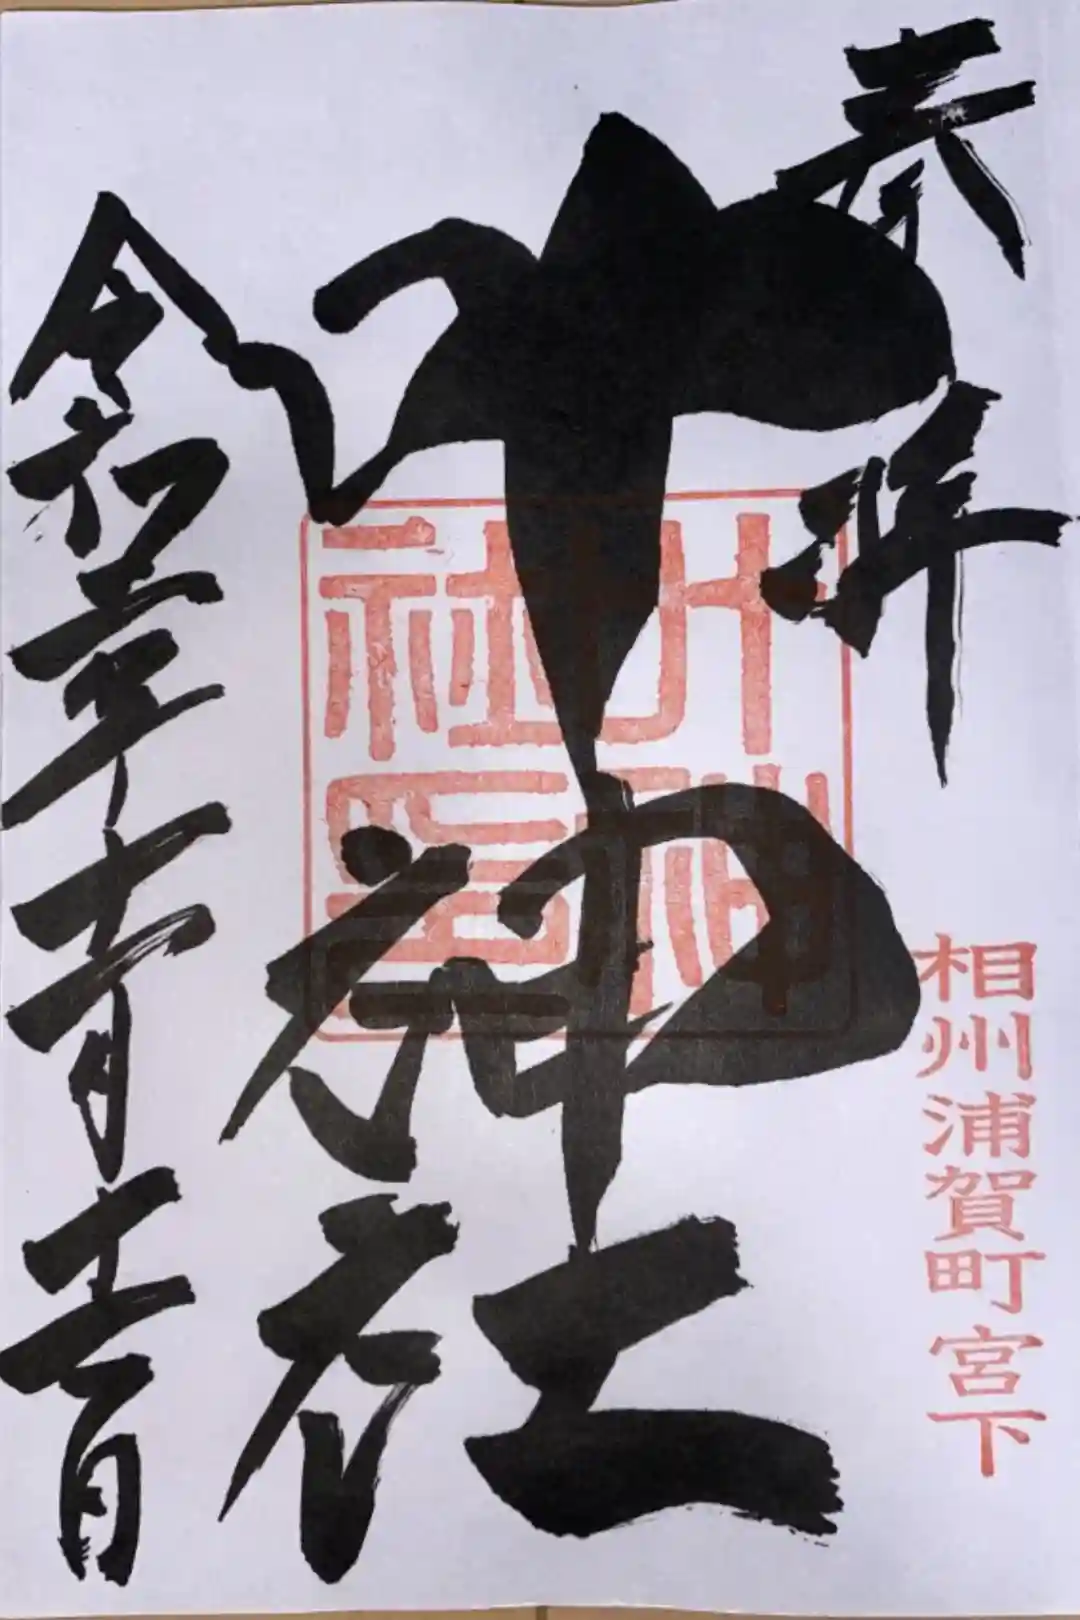 奉拝
相州浦賀町宮下
叶神社
叶神社印
令和年十一月日